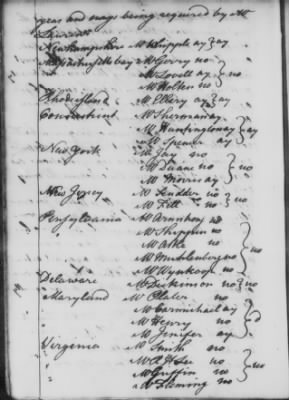 yeas and nays being required by Mr
Laurens
Newhampshire Mr Whipple ay } ay
Massachusetts bay Mr Gerry no
Mr Lovell ay } no
Mr Holten no
Rhode island Mr Ellery ay } ay
Connecticut Mr Sherman ay
Mr Huntington ay } ay
Mr Spencer ay
New York Mr Jay no
Mr Duane no } no
Mr Morris ay
New Jersey Mr Scudder no
Mr Fell no } no
Pensylvania Mr Armstrong no
Mr Shippen no
Mr Atlee no
Mr Muhlenberg no } no
Mr Wynkoop no
Delaware Mr Dickinson no } no
Maryland Mr Plater no
Mr Carmichael ay
Mr Henry no } d
Mr Jenifer ay
Virginia Mr Smith no
Mr R H Lee no
Mr Griffin no } no
Mr Fleming no